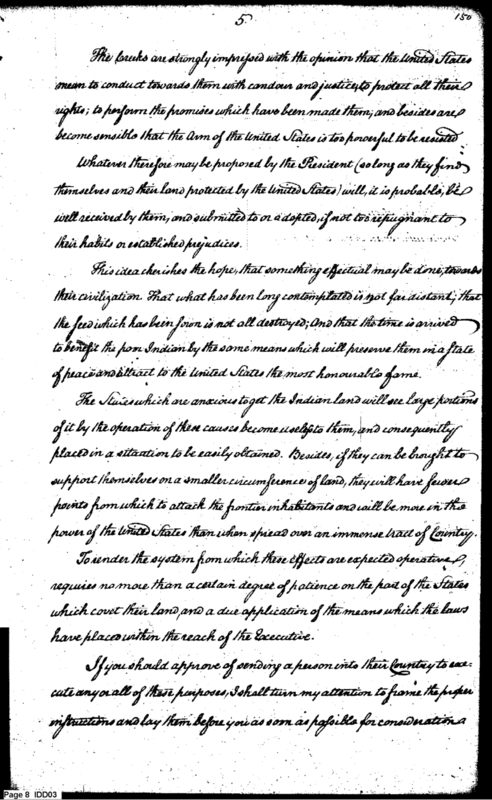 5.
150
The Creeks are strongly impressed with the opinion that the United States
mean to conduct towards them with candour and justice, to protect all their
rights; to perform the promises which have been made them; and besides are
become sensible that the Arm of the United States is too powerful to be resisted
Whatever therefore may be proposed by the President (so long as they find
themselves and their land protected by the United States) will, it is probable, be
well received by them, and submitted to or adopted, if not too repugnant to
their habits or established prejudices.
This idea cherishes the hope, that something effectual may be done, towards
their civilization That what has been long contemplated is not far distant; that
the seed which has been sown is not all destroyed; And that the time is arrived
to benefit the poor Indian by the same means which will preserve them in a state
of peace and attract to the United States the most honourable fame.
The States which are anxious to get the Indian land will see large portions
of it by the operation of these causes become useless to them, and consequently
placed in a situation to be easily obtained. Besides, if they can be brought to
support themselves on a smaller circumference of land, they will have fewer
points from which to attack the frontier inhabitants and will be more in the
power of the United States than when spread over an immense tract of Country.
To render the system from which these effects are expected operative,
requires no more than a certain degree of patience on the part of the States
which covet their land, and a due application of the means which the laws
have placed within the reach of the Executive.
If you should approve of sending a person into their Country to exe-
cute any or all of these purposes, I shall turn my attention to frame the proper
instructions and lay them before you as soon as possible for consideration
Page 8 IDD03